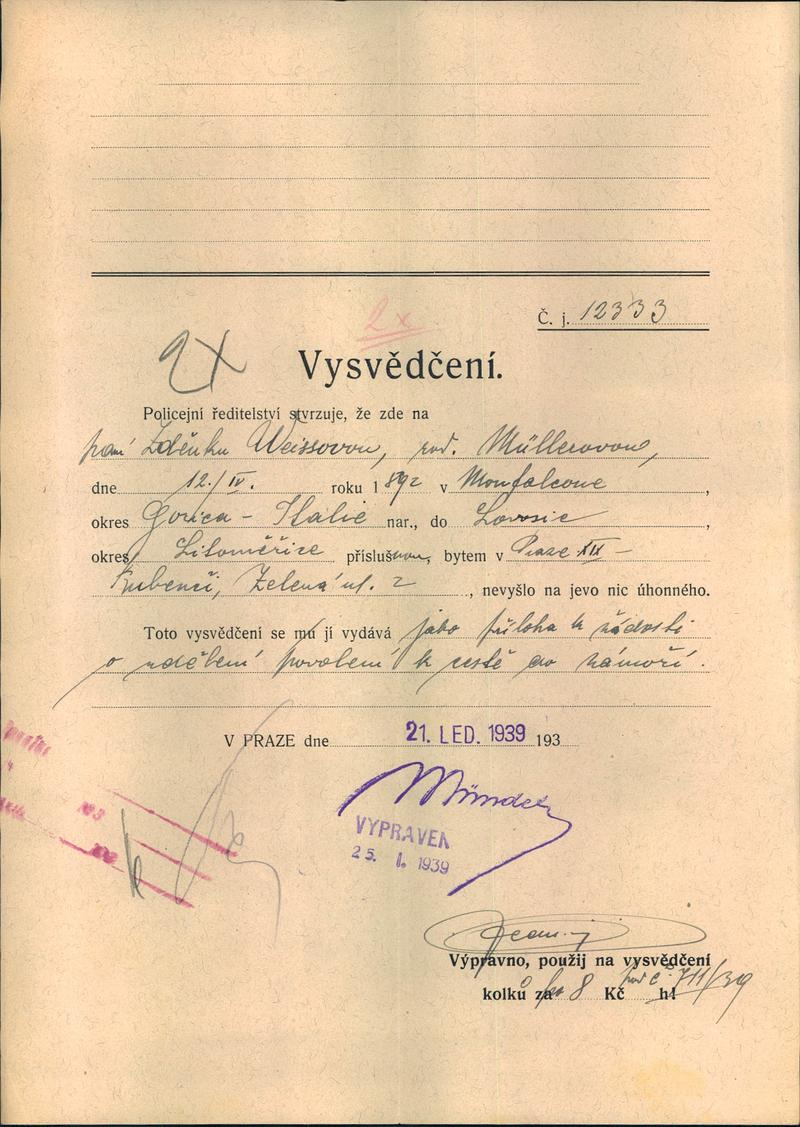 Č. j. 12333
2x
2x
Vysvědčení.
Policejní ředitelství stvrzuje, že zde na
paní Zděnku Weissovou, roz. Müllerovou,
dne 12./IV. roku 1892 v Monfalcone,
okres Gorica - Italie nar., do Lovosic,
okres Litoměřice příslušnou, bytem v Praze XIX -
Bubenči, Zelená ul. 2, nevyšlo na jevo nic úhonného.
Toto vysvědčení se mu jí vydává jako příloha k žádosti
o udělení povolení k cestě do zámoří.
V PRAZE dne 21. LED. 1939 193
VYPRAVEN
25. I. 1939
Výpravno, použij na vysvědčení
kolků za 8 Kč h!
pod č. 711/39